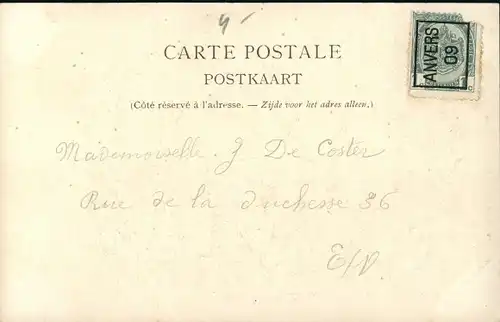 4 -
CARTE POSTALE
POSTKAART
(Côté réservé à l'adresse. — Zijde voor het adres alleen.)
ANVERS
09
Mademoiselle J De Coster
Rue de la duchesse 36
E/V